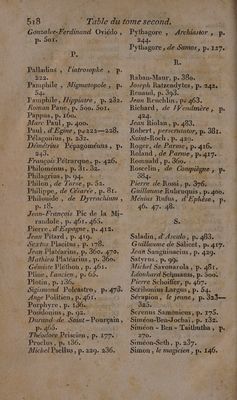 518 Table du tome second.
Gonzalez-Ferdinand Oviédo,
p. 501.
P.
Palladius, l'iatrosophe, p.
122.
Pamphile, Migmatopole, p.
54.
Pamphile, Hippiatre, p. 232.
Roman Pane, p. 500. 501.
Pappus, p. 160.
Marc Paul, p. 400.
Paul, d'Égine, p. 222—228.
Pélagonius, p. 232.
Démétrius Pépagoménus, p.
243.
François Pétrarque, p. 426.
Philoménus, p. 31. 32.
Philagrius, p. 94.
Philon, de Tarse, p. 52.
Philippe, de Césarée, p. 81.
Philonide, de Dyrrachium,
p. 18.
Jean-François Pic de la Mi-
randole, p. 461. 465.
Pierre, d'Espagne, p. 412.
Jean Pitard, p. 419.
Sextus Placitus, p. 178.
Jean Platéarius, p. 360. 479.
Mathieu Platéarius, p. 360.
Gémiste Pléthon, p. 461.
Pline, l'ancien, p. 65.
Plotin, p. 136.
Sigismond Polcastro, p. 473.
Ange Politien, p. 461.
Porphyre, p. 136.
Posidonius, p. 92.
Durand de Saint-Pourçain,
p. 465.
Théodore Priscien, p. 177.
Proclus, p. 136.
Michel Psellus, p. 229. 236.
Pythagore, Archiastor, p.
244.
Pythagore, de Samos, p. 127.
R.
Raban-Maur, p. 380.
Joseph Ratzendytes, p. 242.
Renaud, p. 393.
Jean Reuchlin, p. 463.
Richard, de Wendmère, p.
424.
Jean Riolan, p. 483.
Robert, perscrutator, p. 381.
Saint-Roch, p. 420.
Roger, de Parme, p. 416.
Roland, de Parme, p. 417.
Romuald, p. 360.
Roscelin, de Compiègne, p.
384.
Pierre de Rossi, p. 376.
Guillaume Rubruquis, p. 400.
Ménius Rufus, d'Éphèse, p.
46. 47. 48.
S.
Saladin, d'Ascolo, p. 483.
Guillaume de Salicet, p. 417.
Jean Sanguinacius, p. 429.
Satyrus, p. 99.
Michel Savonarola, p. 481.
Léonhard Schmauss, p. 500.
Pierre Schoiffer, p. 467.
Scribonius Largus, p. 54.
Sérapion, le jeune, p. 323—
325.
Serenus Samonicus, p. 175.
Siméon-Ben-Jochai, p. 132.
Siméon-Ben-Taithutha, p.
270.
Siméon-Seth, p. 237.
Simon, le magicien, p. 146.